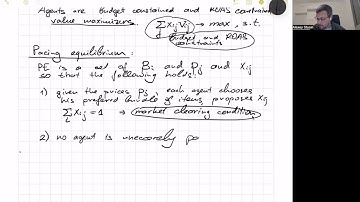 Agents are budget constained and ROAS constraint
value maximizers. ∑ Xij Vij → max, s.t.
budget and ROAS
constraints
Pacing equilibrium:
PE is a set of Bi and Pj and Xij
so that the following holds:
1) given the prices Pj, each agent chooses
his preferred bundle of items, proposes Xij
∑ Xij = 1 → market clearing condition
i
2) no agent is unecessarely pa